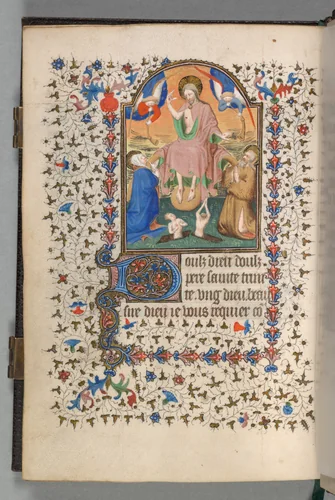 Doulz dieu doulz
pere sainte trini
te. vng dieu. beau
sire dieu ie vous requier co